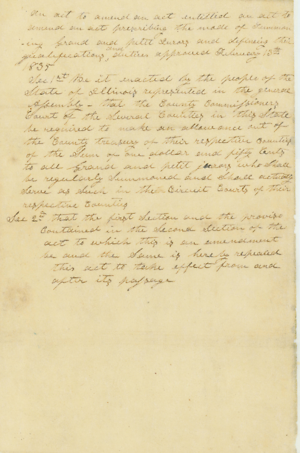 An act to amend an act entitled an act to
amend an act prescribing the mode of Summon-
ing Grand and petit Jurors and defining their
qualifications, & duties approved February 13th
1835
Sec 1st Be it enacted by the people of the
State of Illinois represented in the general
Assembly – that the County Commissioners
Court of the Several Counties in this State
be required to make an allowance out of
the County treasury of their respective Counties
of the Sum of one dollar and fifty cents
to all Grand and petit jurors who shall
be regularly Summoned and shall actually
Serve as Such in the Circuit Courts of their
respective Counties
Sec 2d that the first Section and the proviso
Contained in the Second Section of the
act to which this is an amendment
be and the Same is hereby repealed
this act to take effect from and
after its passage